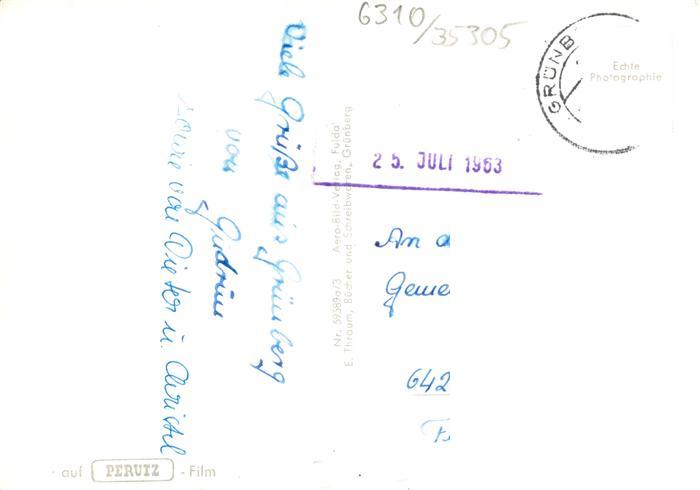 6310/35305
GRÜNB
Echte
Photographie
25. JULI 1963
Viele Grüße aus Grünberg
von Gudrun
sowie von Dieter u. Christel
Nr. 59589a/3 Aero-Bild-Verlag, Fulda
E. Thraum, Bücher und Schreibwaren, Grünberg
An d
Geme
642
auf PERUTZ - Film